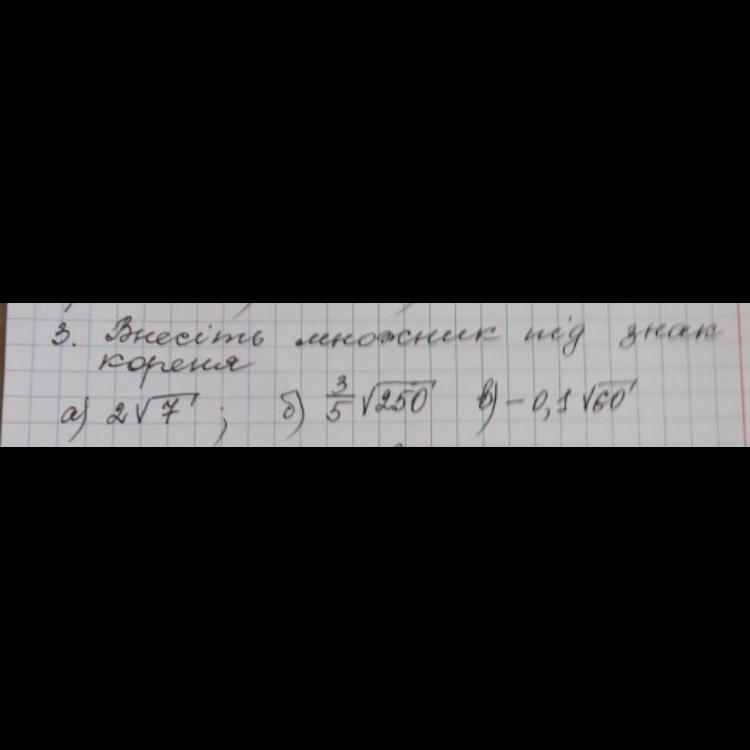 3. Внесіть множник під знак
кореня
а) 2√7 ; б) 3/5 √250 в) -0,1 √60